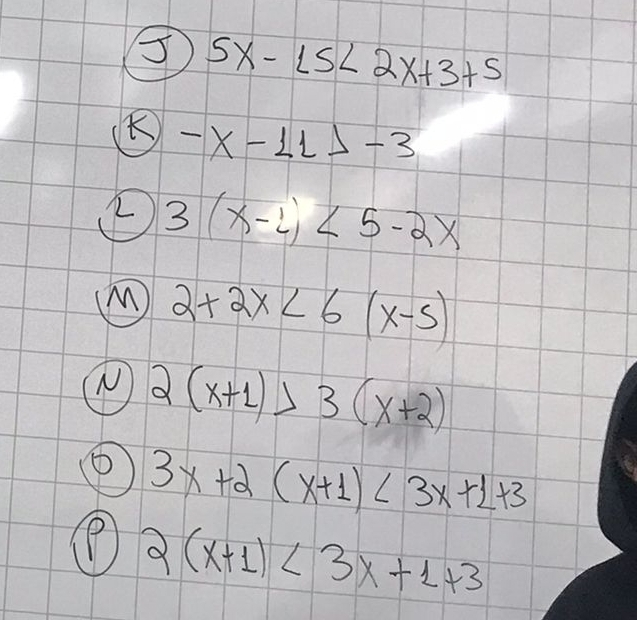 J 5x - 15 < 2x+3+5
K -x - 11 > -3
L 3 (x-1) < 5 - 2x
M 2+2x < 6 (x-5)
N 2 (x+1) > 3 (x+2)
O 3x+2 (x+1) < 3x+1+3
P 2 (x+1) < 3x+1+3